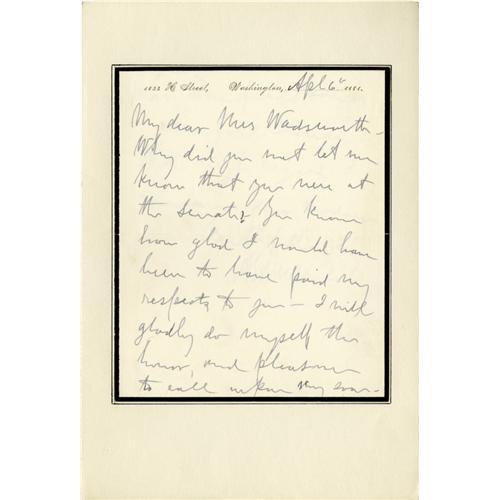 1822 H Street, Washington, Apl 6" 1881.
My dear Mrs Wadsworth -
Why did you not let me
know that you were at
the Senate? You know
how glad I would have
been to have paid my
respects to you - I will
gladly do myself the
honor, and pleasure
to call upon my